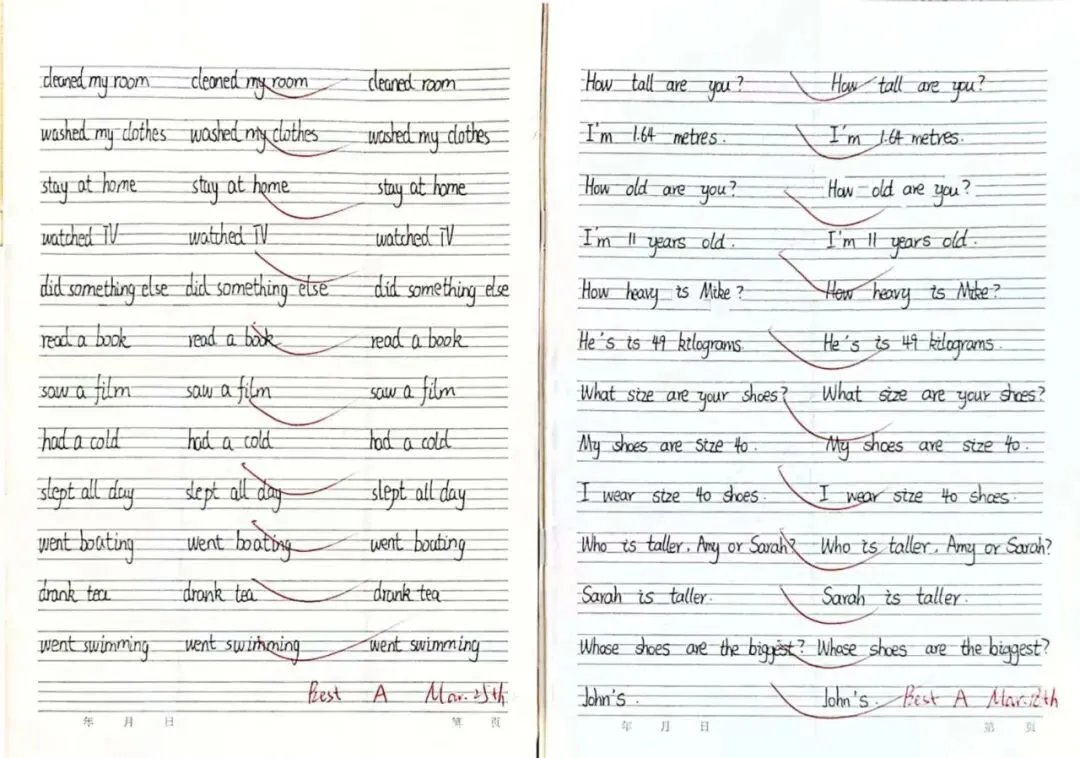 cleaned my room cleaned my room cleaned room
washed my clothes washed my clothes washed my clothes
stay at home stay at home stay at home
watched TV watched TV watched TV
did something else did something else did something else
read a book read a book read a book
saw a film saw a film saw a film
had a cold had a cold had a cold
slept all day slept all day slept all day
went boating went boating went boating
drank tea drank tea drank tea
went swimming went swimming went swimming
Best A Mar. 25th
年 月 日 第 页
How tall are you? How tall are you?
I'm 1.64 metres. I'm 1.64 metres.
How old are you? How old are you?
I'm 11 years old. I'm 11 years old.
How heavy is Mike? How heavy is Mike?
He's is 49 kilograms. He's is 49 kilograms.
What size are your shoes? What size are your shoes?
My shoes are size 40. My shoes are size 40.
I wear size 40 shoes. I wear size 40 shoes.
Who is taller, Amy or Sarah? Who is taller, Amy or Sarah?
Sarah is taller. Sarah is taller.
Whose shoes are the biggest? Whose shoes are the biggest?
John's. John's. Best A Mar. 12th
年 月 日 第 页